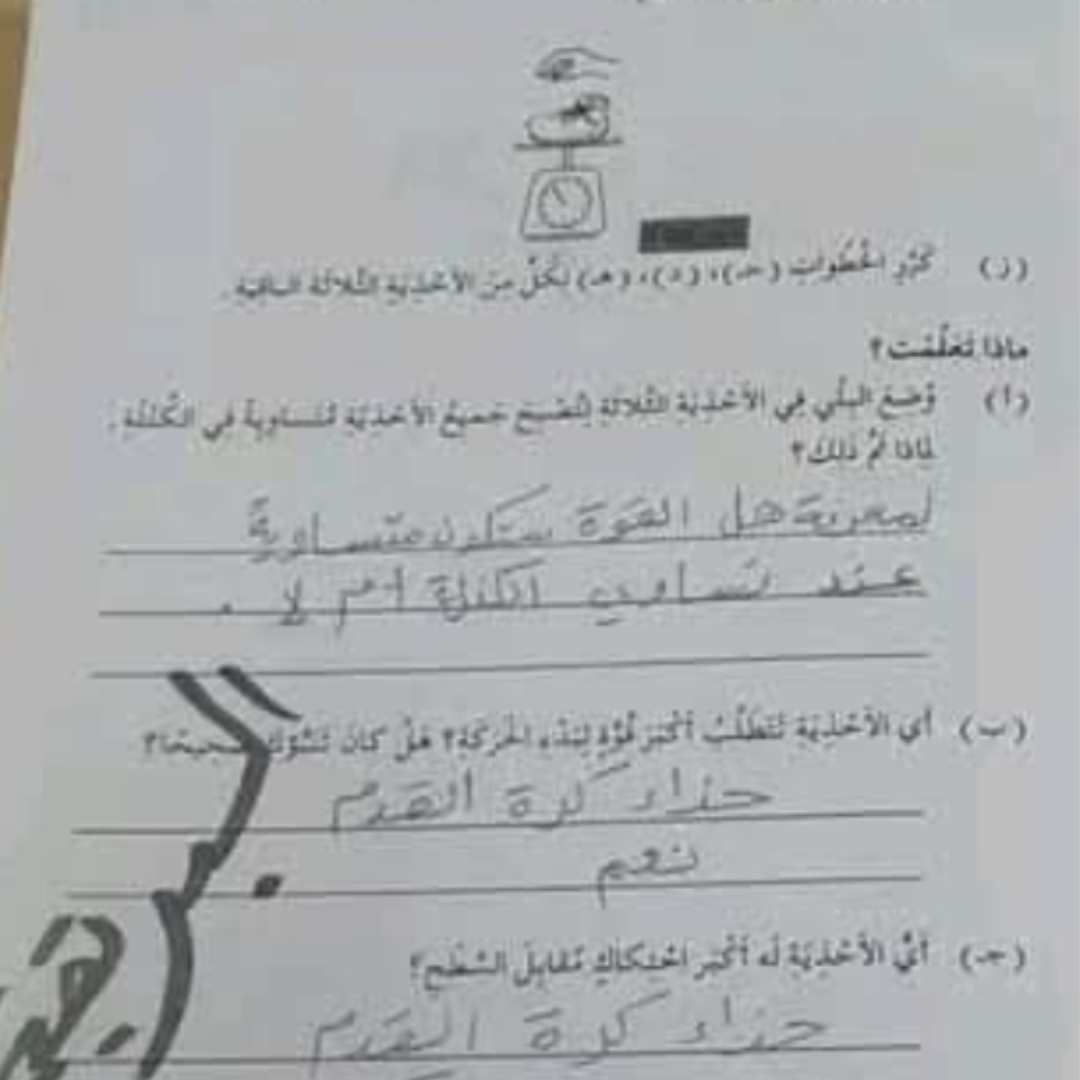 (ز) كَرِّرِ الخُطُواتِ (جـ)، (د)، (هـ) لِكُلٍّ مِنَ الأَحْذِيَةِ الثَّلاثَةِ الباقِيَةِ.
ماذا تَعَلَّمْتَ؟
(أ) وُضِعَ البِلْي فِي الأَحْذِيَةِ الثَّلاثَةِ لِتُصْبِحَ جَمِيعُ الأَحْذِيَةِ مُتَساوِيَةً فِي الكُتْلَةِ.
لِماذا تَمَّ ذلِكَ؟
لمعرفة هل القوة ستكون متساوية
عند تساوي الكتلة أم لا .
(ب) أي الأَحْذِيَةِ تَتَطَلَّبُ أَكْبَرَ قُوَّةٍ لِبَدْءِ الحَرَكَةِ؟ هَلْ كانَ تَنَبُّؤُكَ صَحِيحًا؟
حذاء كرة القدم
نعم
(جـ) أَيُّ الأَحْذِيَةِ لَه أَكْبَر احْتِكاكٍ مُقابِلَ السَّطْحِ؟
حذاء كرة القدم